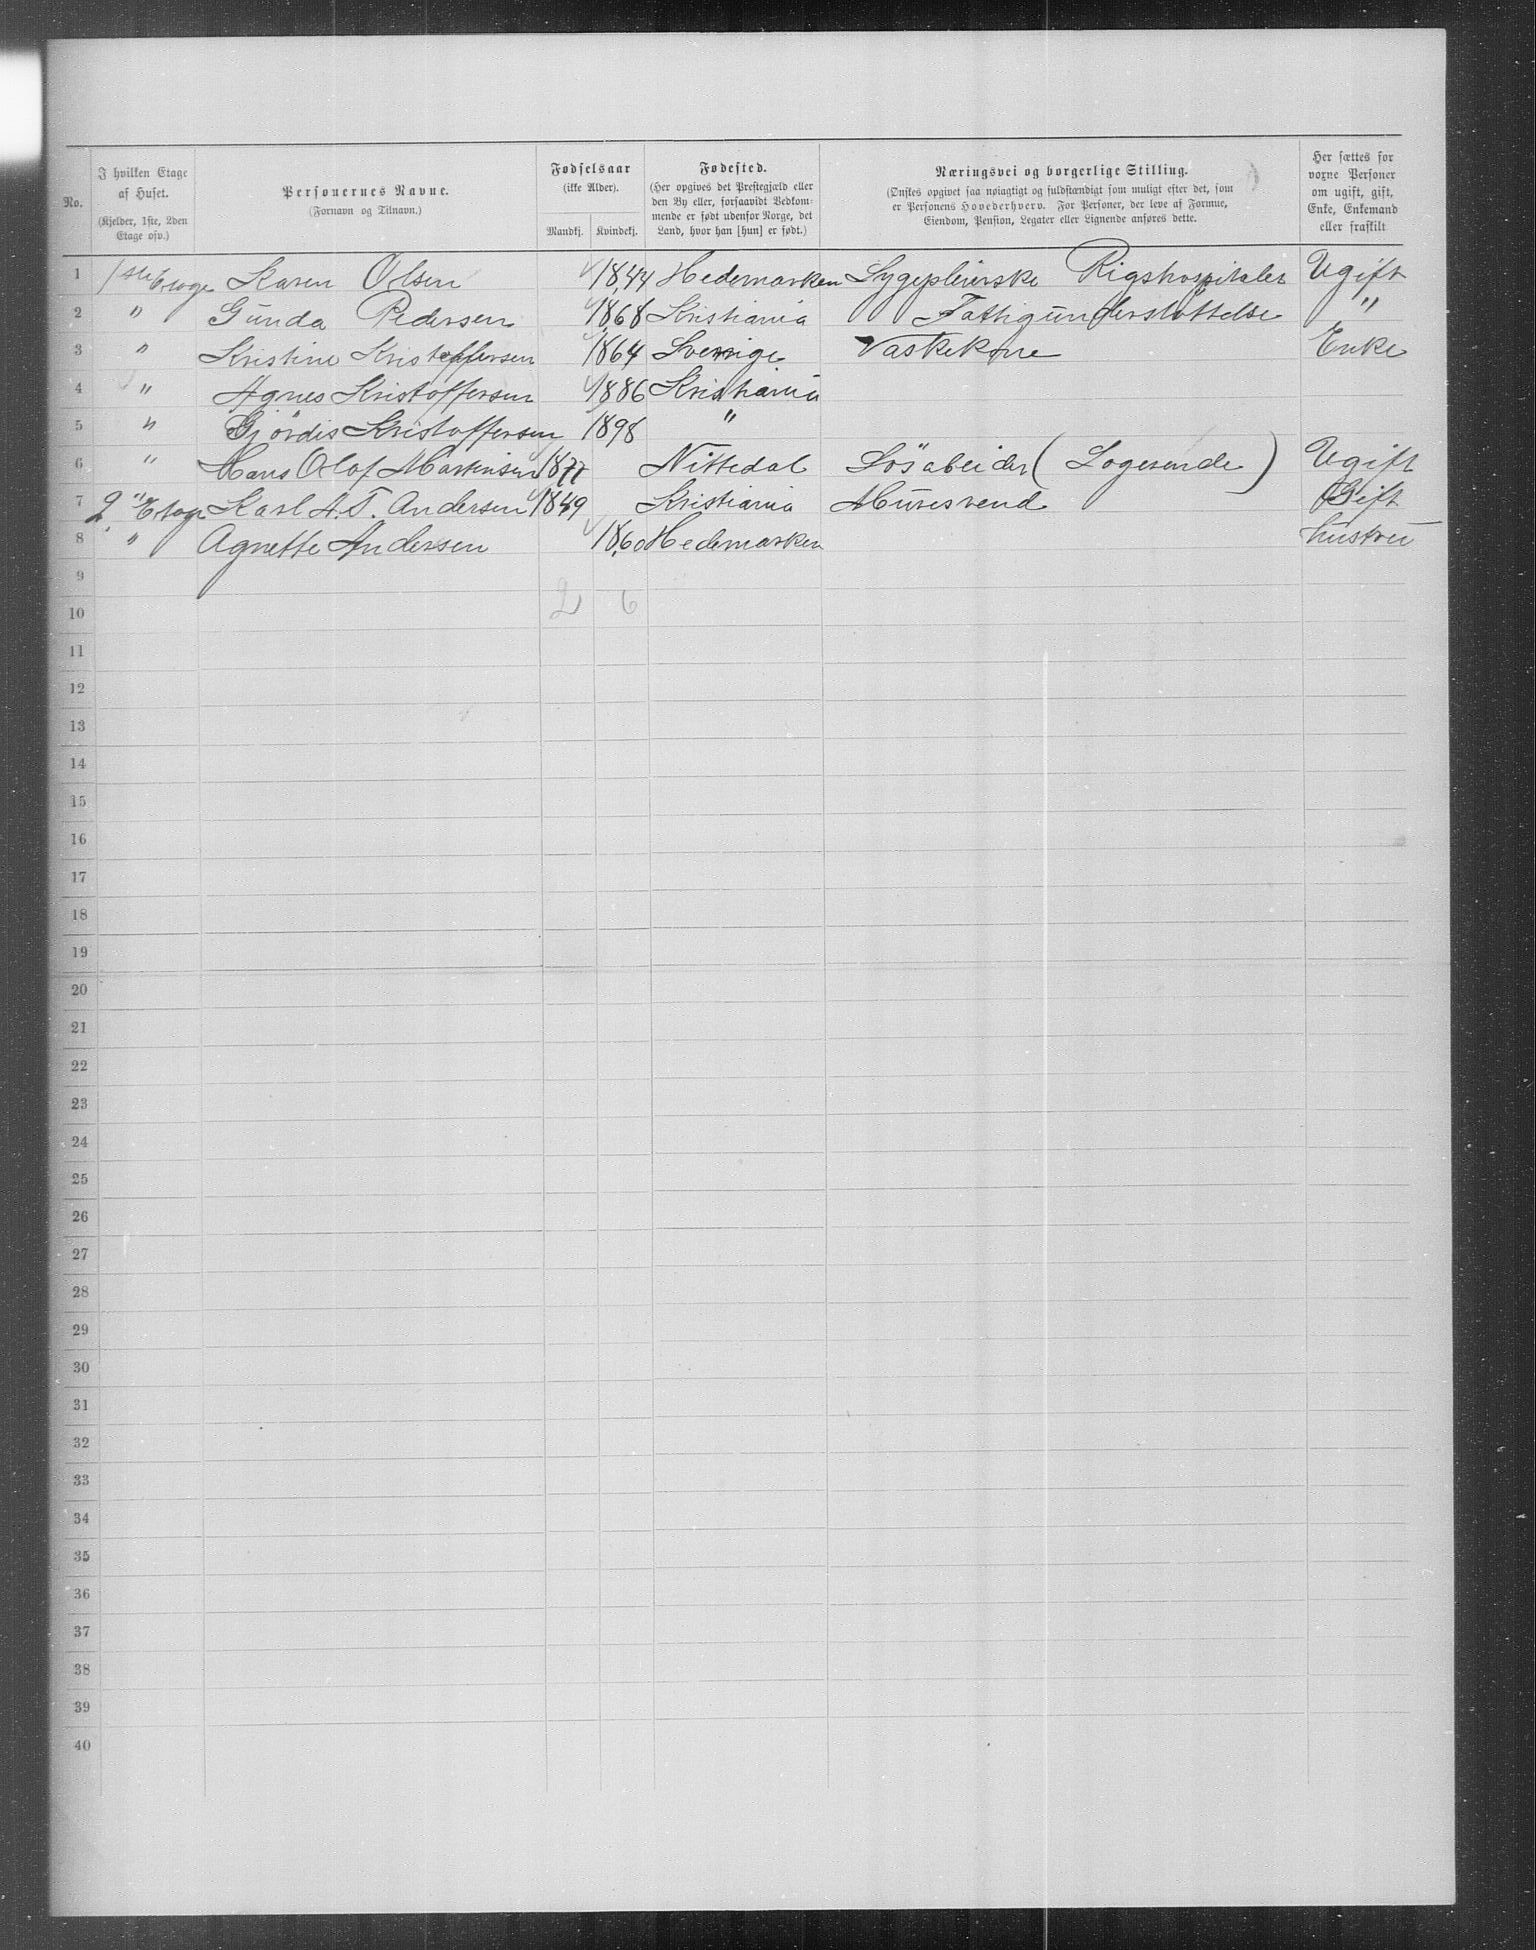 No. | I hvilken Etage af Huset. (Kjelder, 1ste, 2den Etage osv.) | Personernes Navne. (Fornavn og Tilnavn.) | Fødselsaar (ikke Alder). Mandkj. | Kvindekj. | Fødested. (Her opgives det Prestegjæld eller den By eller, forsaavidt Vedkommende er født udenfor Norge, det Land, hvor han [hun] er født.) | Næringsvei og borgerlige Stilling. (Ønskes opgivet saa nøiagtigt og fuldstændigt som muligt efter det, som er Personens Hovederhverv. For Personer, der leve af Formue, Eiendom, Pension, Legater eller Lignende anføres dette. | Her sættes for voxne Personer om ugift, gift, Enke, Enkemand eller fraskilt
1 | 1ste Etage | Karen Olsen | | 1844 | Hedemarken | Sygepleierske Rigshospitalet | Ugift
2 | " | Gunda Pedersen | | 1868 | Kristiania | Fattigunderstöttelse | "
3 | " | Kristine Kristoffersen | | 1864 | Sverrige | Vaskekone | Enke
4 | " | Agnes Kristoffersen | | 1886 | Kristiania
5 | " | Gjördis Kristoffersen | | 1898 | "
6 | " | Hans Olof Martinsen | 1877 | | Nittedal | Lösabeider ( Logerende ) | Ugift
7 | 2 " Etage | Karl A. T. Andersen | 1849 | | Kristiania | Muresvend | Gift
8 | " | Agnette Andersen | | 1860 | Hedemarken | | hustru
9
10 | | | 2 | 6
11
12
13
14
15
16
17
18
19
20
21
22
23
24
25
26
27
28
29
30
31
32
33
34
35
36
37
38
39
40